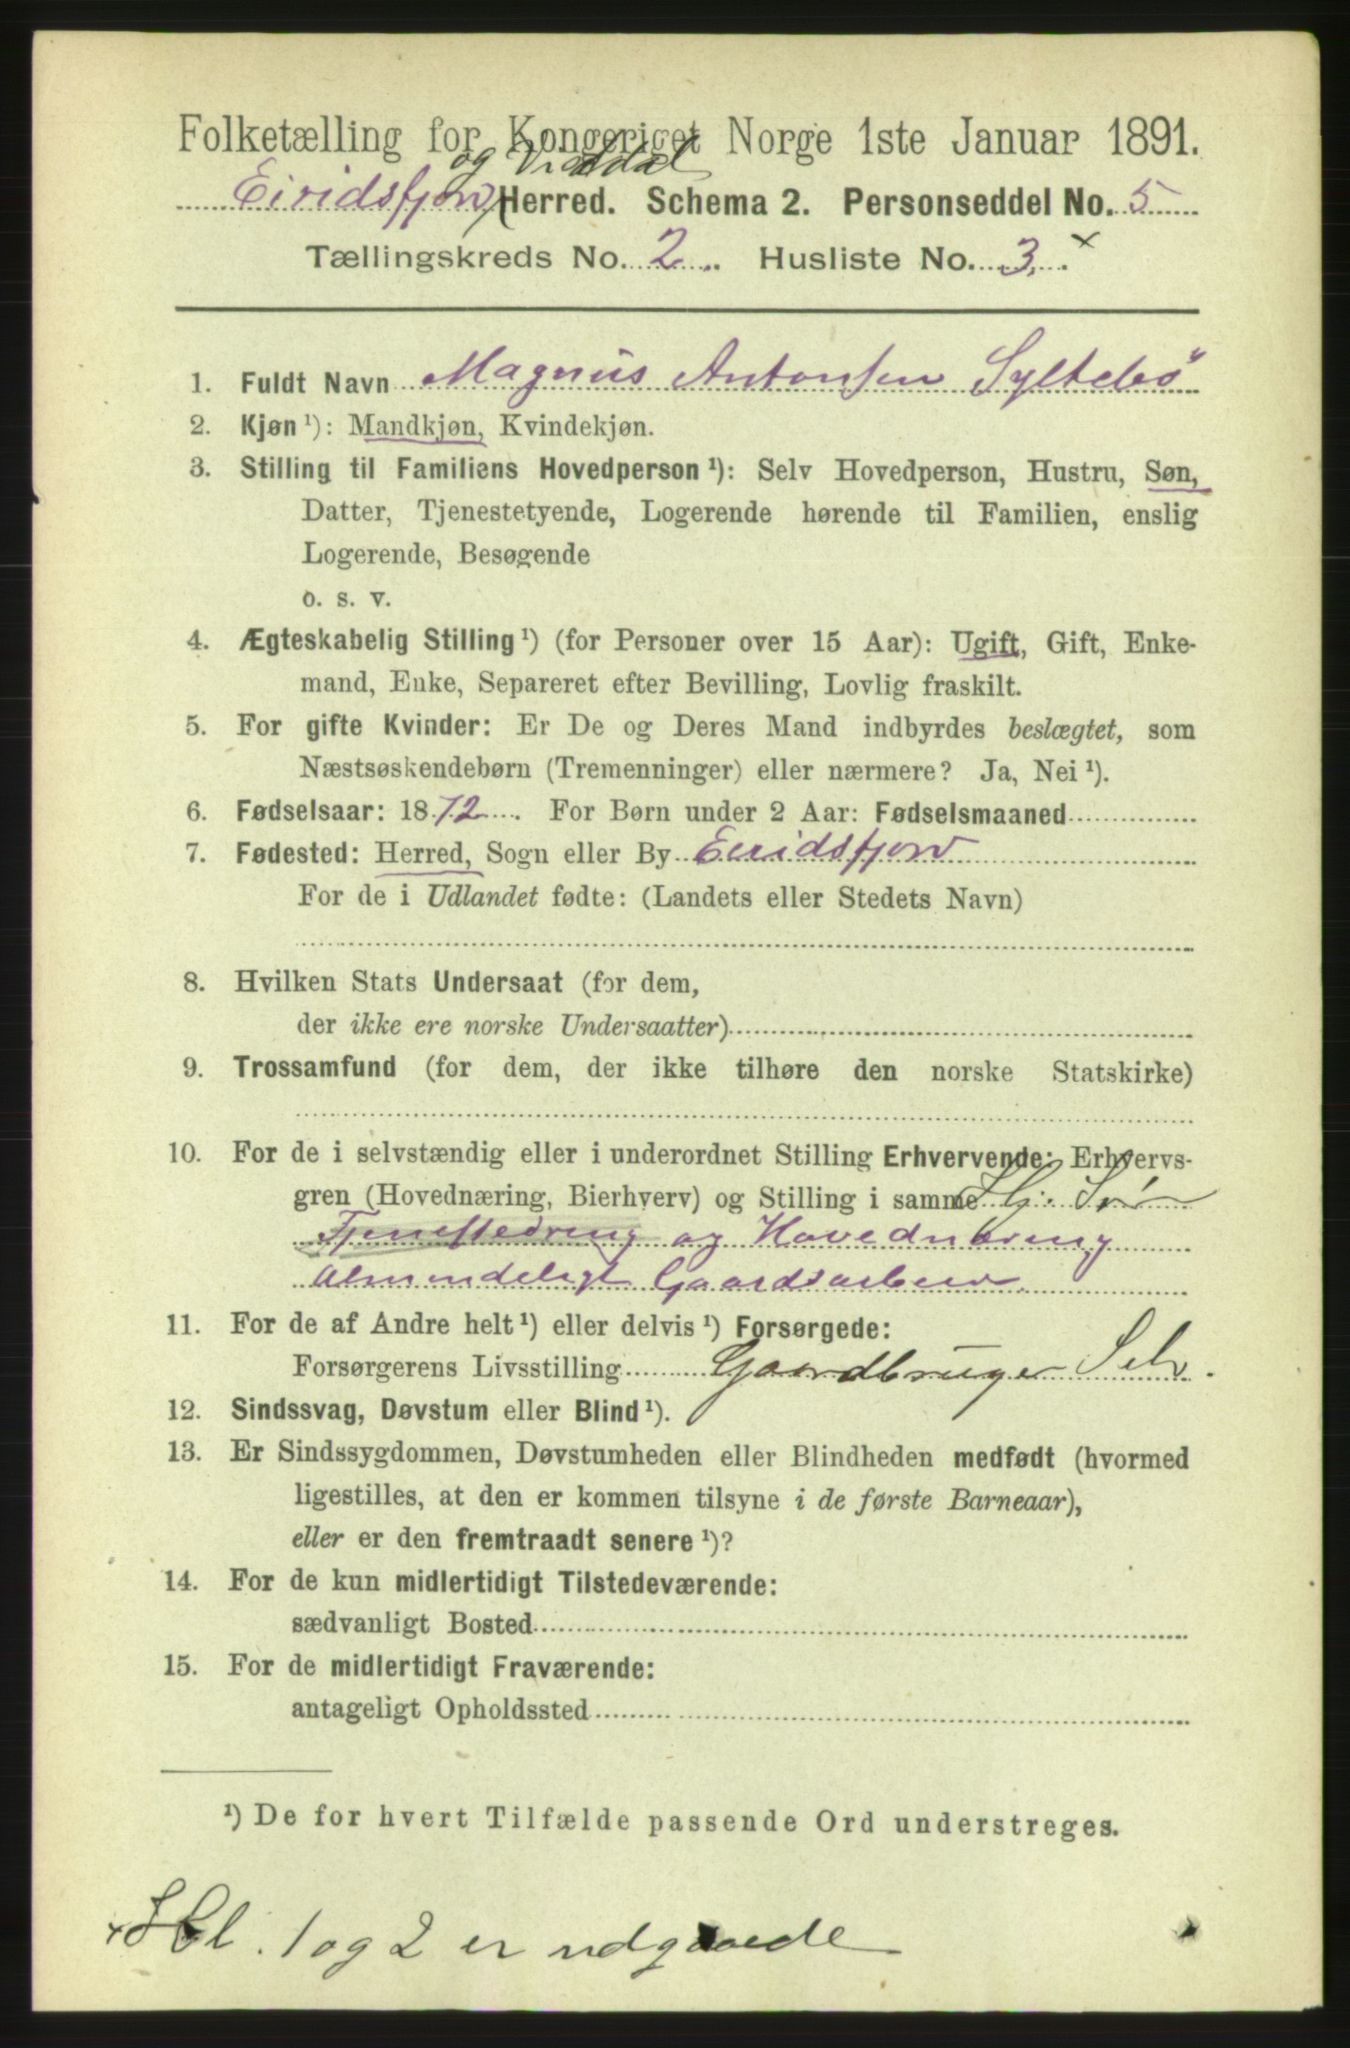 Folketælling for Kongeriget Norge 1ste Januar 1891.
og Vistdal
Eiridsfjord Herred. Schema 2. Personseddel No. 5
Tællingskreds No. 2. Husliste No. 3. x
1. Fuldt Navn Magnus Antonsen Syltebö
2. Kjøn ¹): Mandkjøn, Kvindekjøn.
3. Stilling til Familiens Hovedperson ¹): Selv Hovedperson, Hustru, Søn,
Datter, Tjenestetyende, Logerende hørende til Familien, enslig
Logerende, Besøgende
o. s. v.
4. Ægteskabelig Stilling ¹) (for Personer over 15 Aar): Ugift, Gift, Enke-
mand, Enke, Separeret efter Bevilling, Lovlig fraskilt.
5. For gifte Kvinder: Er De og Deres Mand indbyrdes beslægtet, som
Næstsøskendebørn (Tremenninger) eller nærmere? Ja, Nei ¹).
6. Fødselsaar: 1872. For Børn under 2 Aar: Fødselsmaaned
7. Fødested: Herred, Sogn eller By Eiridsfjord
For de i Udlandet fødte: (Landets eller Stedets Navn)
8. Hvilken Stats Undersaat (for dem,
der ikke ere norske Undersaatter)
9. Trossamfund (for dem, der ikke tilhøre den norske Statskirke)
10. For de i selvstændig eller i underordnet Stilling Erhvervende: Erhvervs-
gren (Hovednæring, Bierhverv) og Stilling i samme
og Hovednæring
Almindeligt Gaardsarbeid.
11. For de af Andre helt ¹) eller delvis ¹) Forsørgede:
Forsørgerens Livsstilling Gaardbruger Selv.
12. Sindssvag, Døvstum eller Blind ¹).
13. Er Sindssygdommen, Døvstumheden eller Blindheden medfødt (hvormed
ligestilles, at den er kommen tilsyne i de første Barneaar),
eller er den fremtraadt senere ¹)?
14. For de kun midlertidigt Tilstedeværende:
sædvanligt Bosted
15. For de midlertidigt Fraværende:
antageligt Opholdssted
¹) De for hvert Tilfælde passende Ord understreges.
x Hl. 1 og 2 er udgaaede